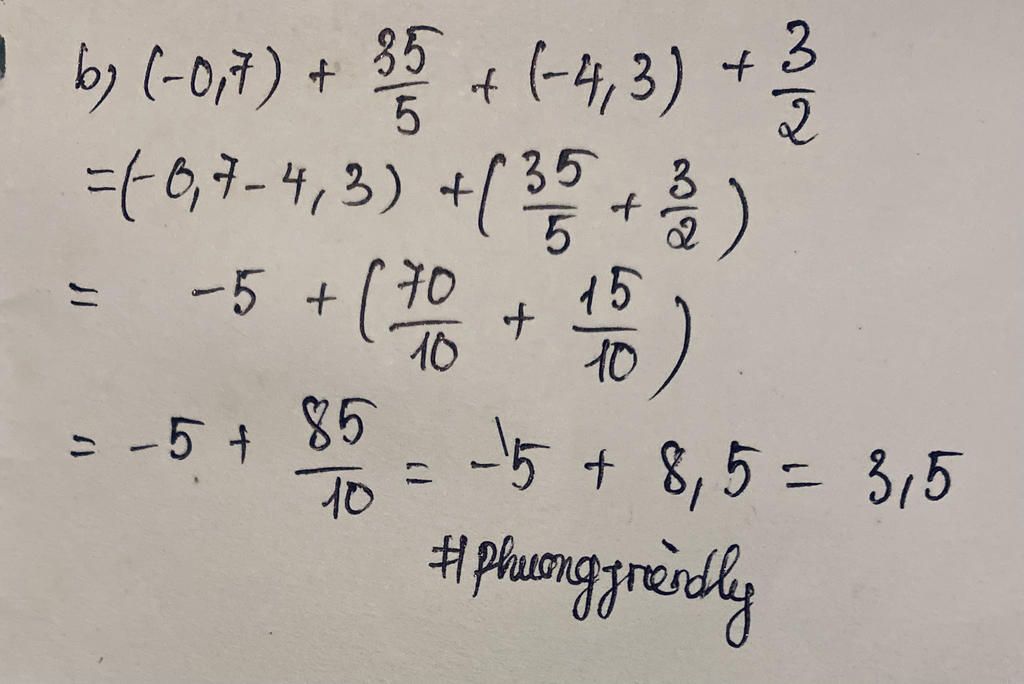 b) (-0,7) + 35/5 + (-4,3) + 3/2
=(-0,7-4,3) + (35/5 + 3/2)
= -5 + (70/10 + 15/10)
= -5 + 85/10 = -5 + 8,5 = 3,5
#phuongfrièndly